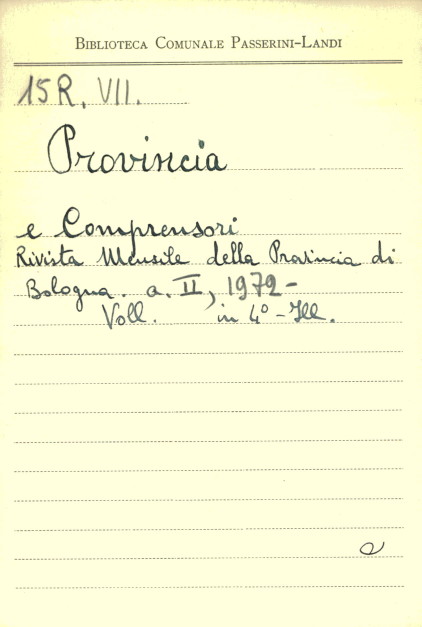 BIBLIOTECA COMUNALE PASSERINI-LANDI
15 R. VII.
Provincia
e Comprensori
Rivista Mensile della Provincia di
Bologna. a. II, 1972-
Voll. in 4° - Ill.